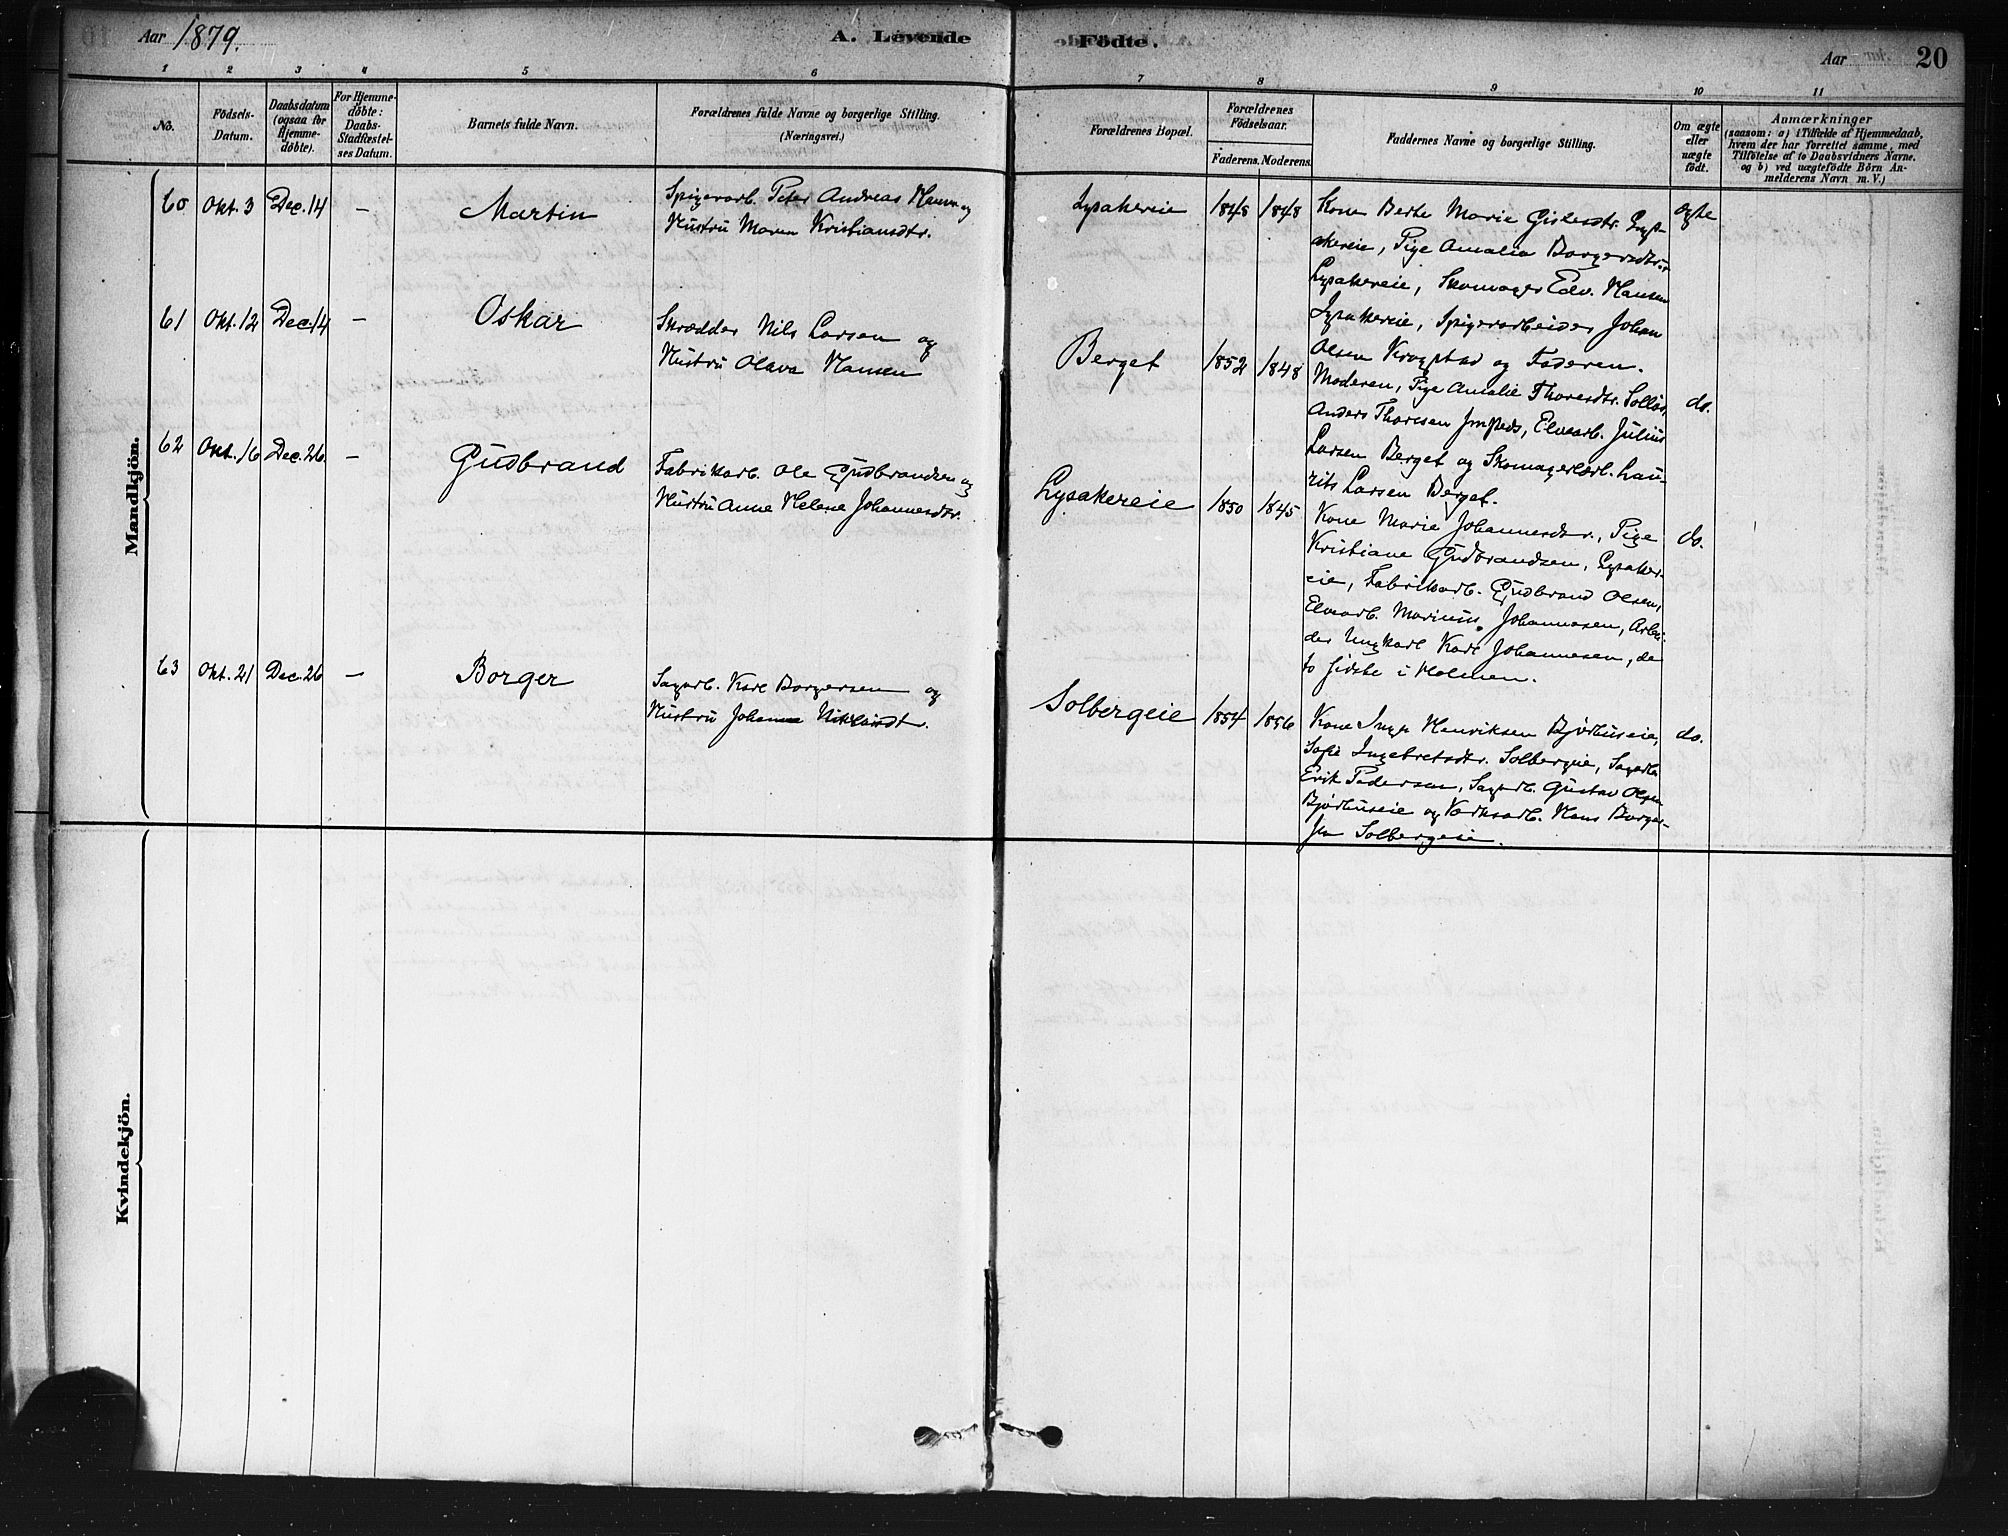 Aar 1879.
A. Levende Födte.
Aar 20
1 2 3 4 5 6 7 8 9 10 11
No.
Födsels-
Datum.
Daabsdatum
(ogsaa for
Hjemme-
döbte).
For Hjemme-
döbte:
Daabs-
Stadfæstel-
ses Datum.
Barnets fulde Navn.
Forældrenes fulde Navne og borgerlige Stilling.
(Næringsvei.)
Forældrenes Bopæl.
Forældrenes
Födselsaar.
Faderens. Moderens.
Faddernes Navne og borgerlige Stilling.
Om ægte
eller
uægte
födt.
Anmærkninger
(saasom: a) i Tilfælde af Hjemmedaab,
hvem der har forrettet samme, med
Tilföielse af to Daabsvidners Navne.
og b) ved uægtefödte Börn An-
melderens Navn m. V.)
Mandkjön.
60 Okt. 3 Dec. 14 — Martin
Spigerarb. Peter Andreas Hansen og
Hustru Maren Kristiansdtr.
Lysakereie 1848 1848
Kone Berte Marie Gislesdtr. Lys-
akereie, Pige Amalia Borgersdtr.
Lysakereie, Skomager Edv. Hansen
Lysakereie, Spigerarbeider Johan
Olsen Krogstad og Faderen.
ægte
61 Okt. 12 Dec. 14 — Oskar
Skrædder Nils Larsen og
Hustru Olava Hansen
Berget 1852 1848
Moderen, Pige Amalie Thoresdtr.
Anders Thoresen, Elvearb. Julius
Larsen Berget og Skomagerlærl. Lau-
rits Larsen Berget.
do.
62 Okt. 16 Dec. 26 — Gudbrand
Fabrikarb. Ole Gudbrandsen og
Hustru Anne Helene Johannesdtr.
Lysakereie 1850 1845
Kone Marie Johannesdtr., Pige
Kristiane Gudbrandsen, Lysaker-
eie, Fabrikarb. Gudbrand Olsen,
Elvearb. Marinus Johannesen, Arbei-
der Ungkarl Karl Johannesen, de
to sidste i Holmen.
do.
63 Okt. 21 Dec. 26 — Borger
Sagarb. Karl Borgersen og
Hustru Johanne
Solbergeie 1854 1856
Kone Inga Henriksen Bjørhuseie,
Sofie Ingebretsdtr. Solbergeie, Sagarb.
Erik Pedersen, Sagarb. Gustav Olsen
Bjørhuseie og Hans Borger-
sen Solbergeie.
do.
Kvindekjön.